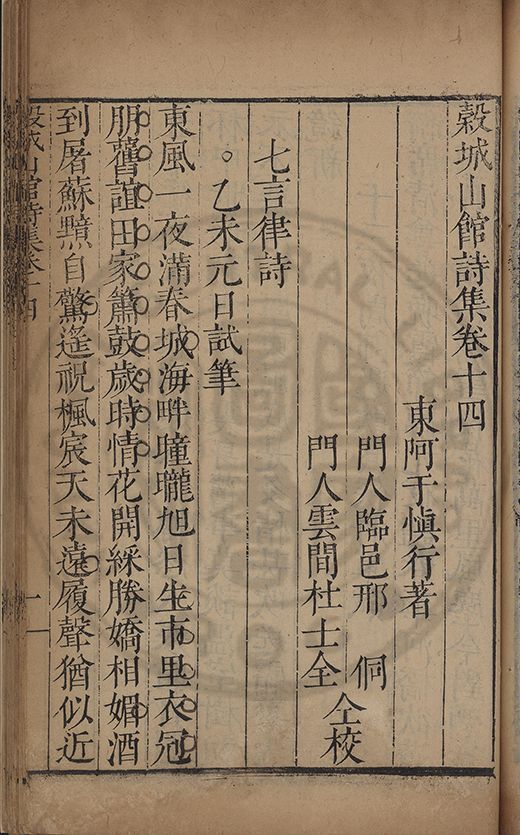 榖城山館詩集卷十四
東阿于愼行著
門人臨邑邢侗
門人雲間杜士全
仝校
七言律詩
乙未元日試筆
東風一夜滿春城海畔曈曨旭日生市里衣冠
朋舊誼田家簫鼓歲時情花開綵勝嬌相媚酒
到屠蘇黯自驚遙祝楓宸天未遠履聲猶似近
榖城山館詩集卷十四
一